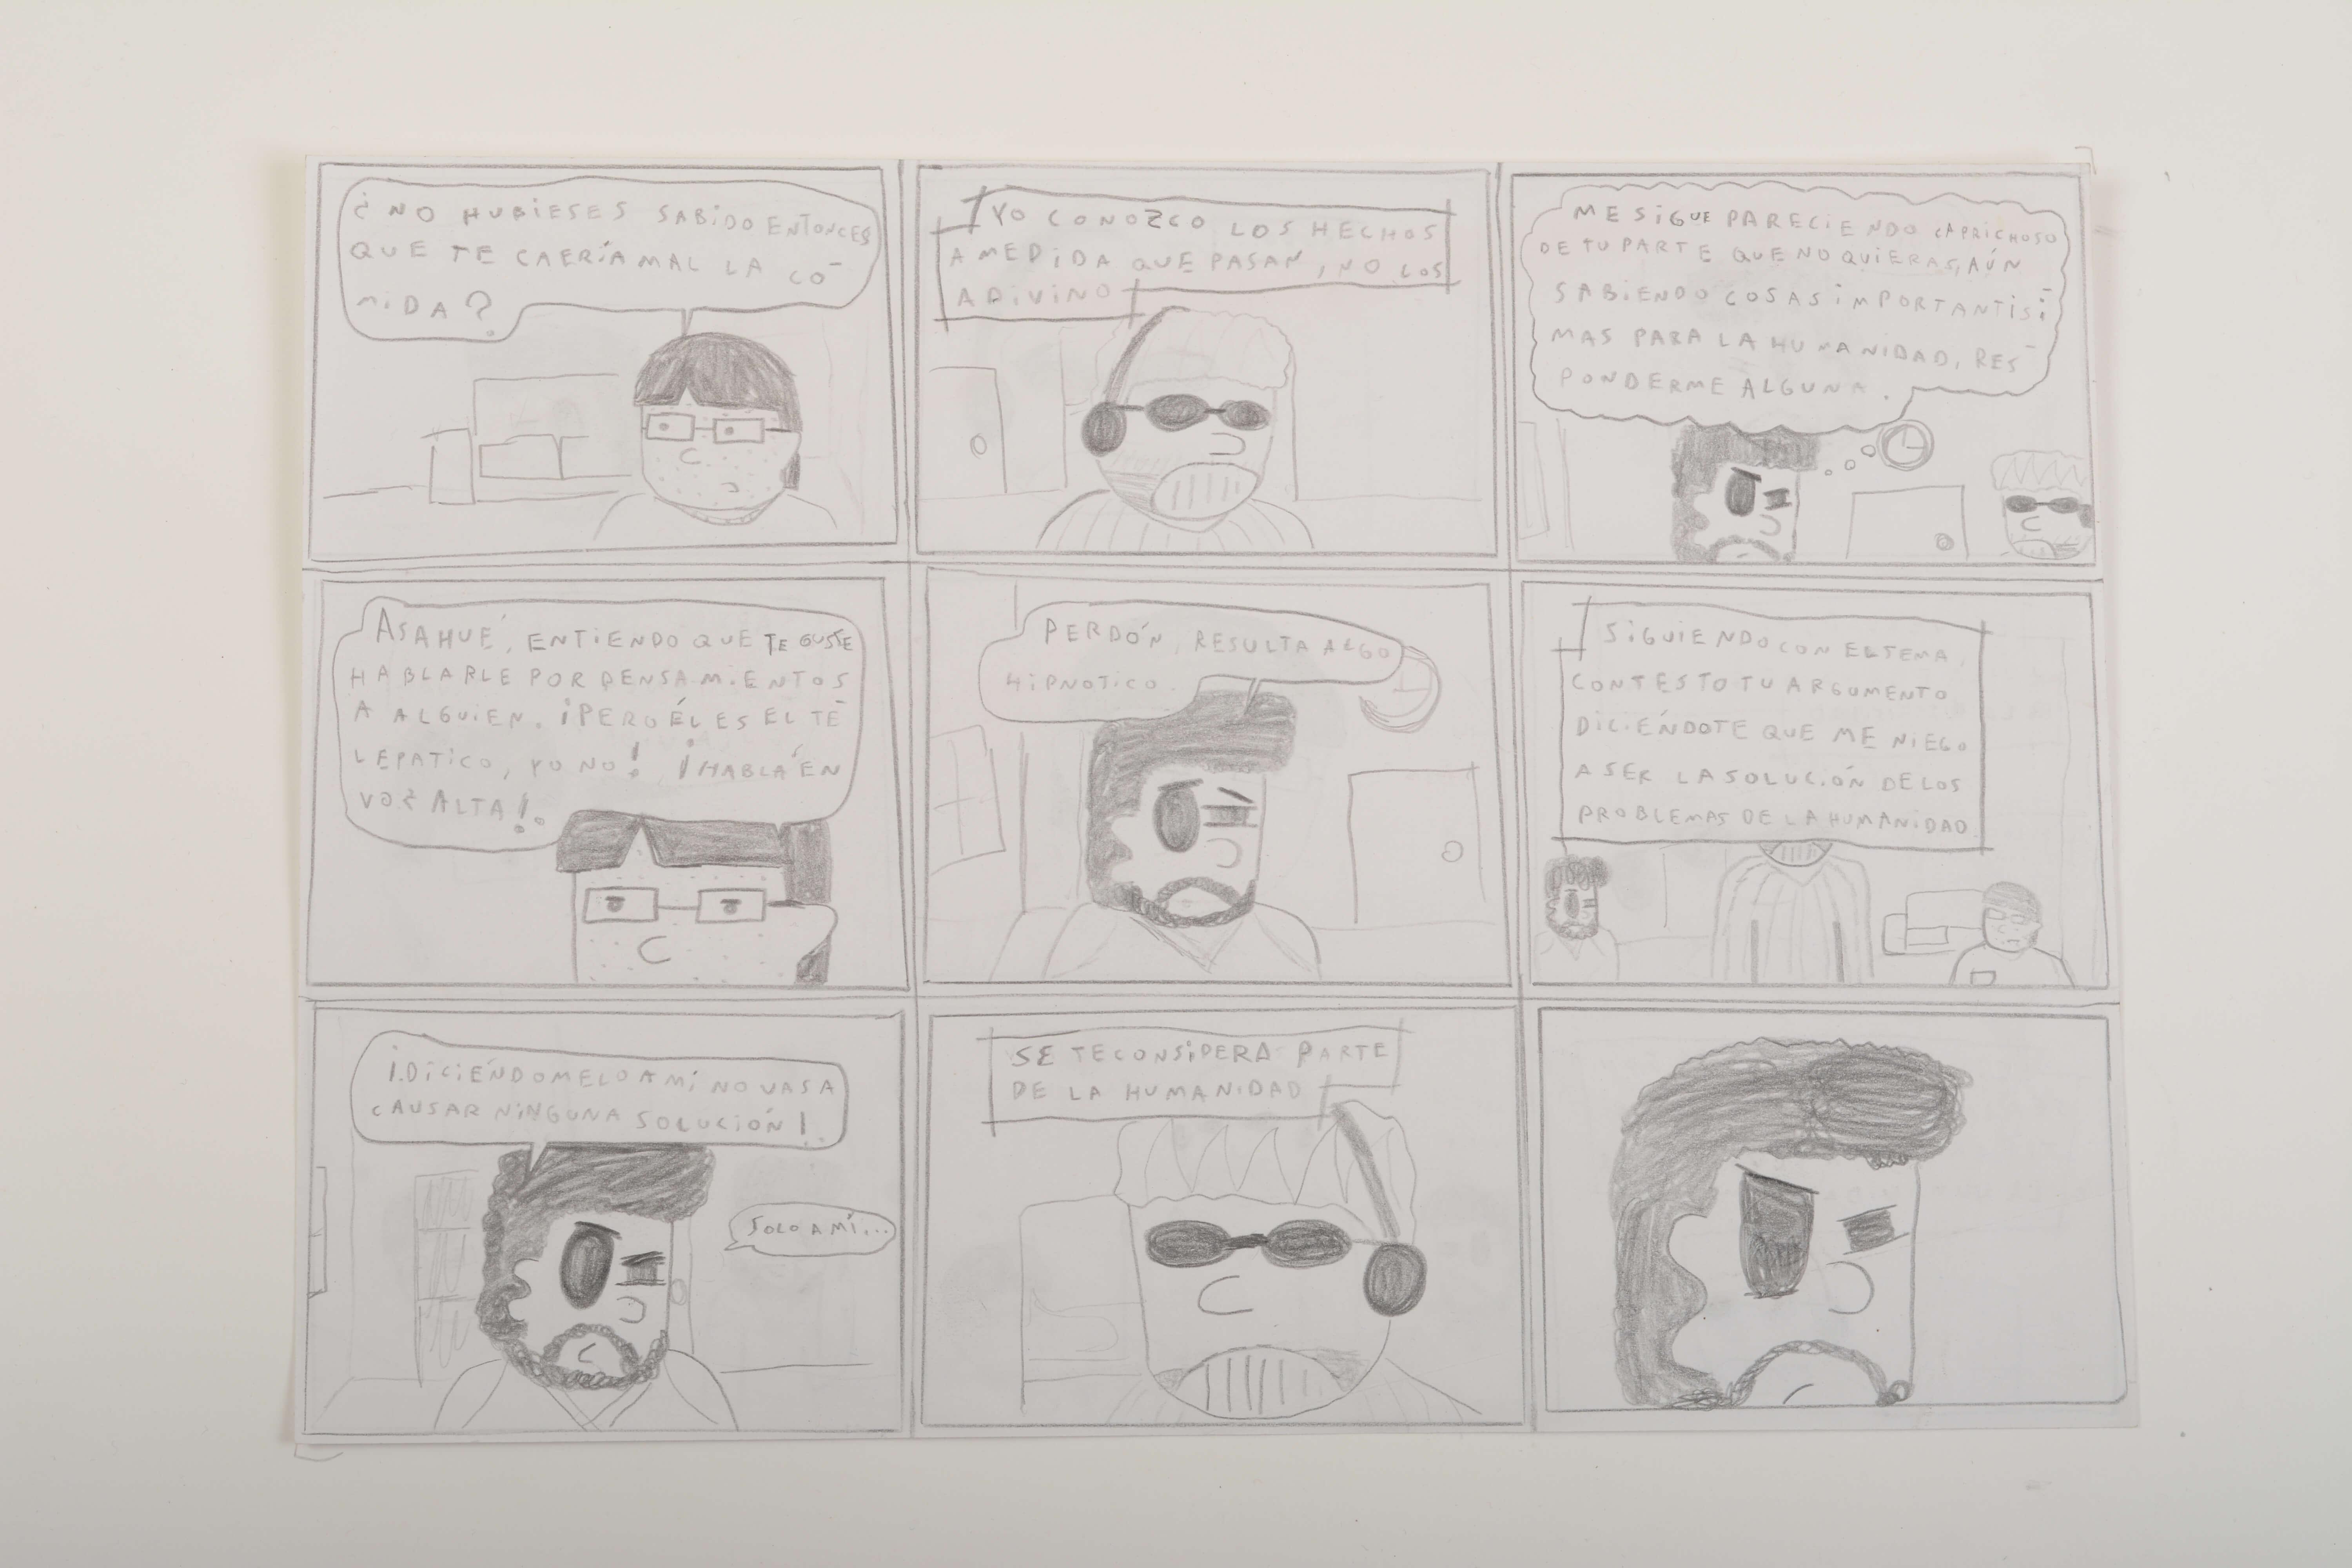 ¿NO HUBIESES SABIDO ENTONCES
QUE TE CAERÍA MAL LA CO-
MIDA?
YO CONOZCO LOS HECHOS
A MEDIDA QUE PASAN, NO LOS
ADIVINO
ME SIGUE PARECIENDO CAPRICHOSO
DE TU PARTE QUE NO QUIERAS, AÚN
SABIENDO COSAS IMPORTANTISI-
MAS PARA LA HUMANIDAD, RES-
PONDERME ALGUNA.
ASAHUÉ, ENTIENDO QUE TE GUSTE
HABLARLE POR PENSAMIENTOS
A ALGUIEN. ¡PERO ÉL ES EL TE-
LEPATICO, YO NO! ¡HABLÁ EN
VOZ ALTA!.
PERDÓN, RESULTA ALGO
HIPNOTICO.
SIGUIENDO CON EL TEMA,
CONTESTO TU ARGUMENTO
DICIÉNDOTE QUE ME NIEGO
A SER LA SOLUCIÓN DE LOS
PROBLEMAS DE LA HUMANIDAD
¡DICIÉNDOMELO A MÍ NO VAS A
CAUSAR NINGUNA SOLUCIÓN!.
SOLO A MÍ...
SE TE CONSIDERA PARTE
DE LA HUMANIDAD